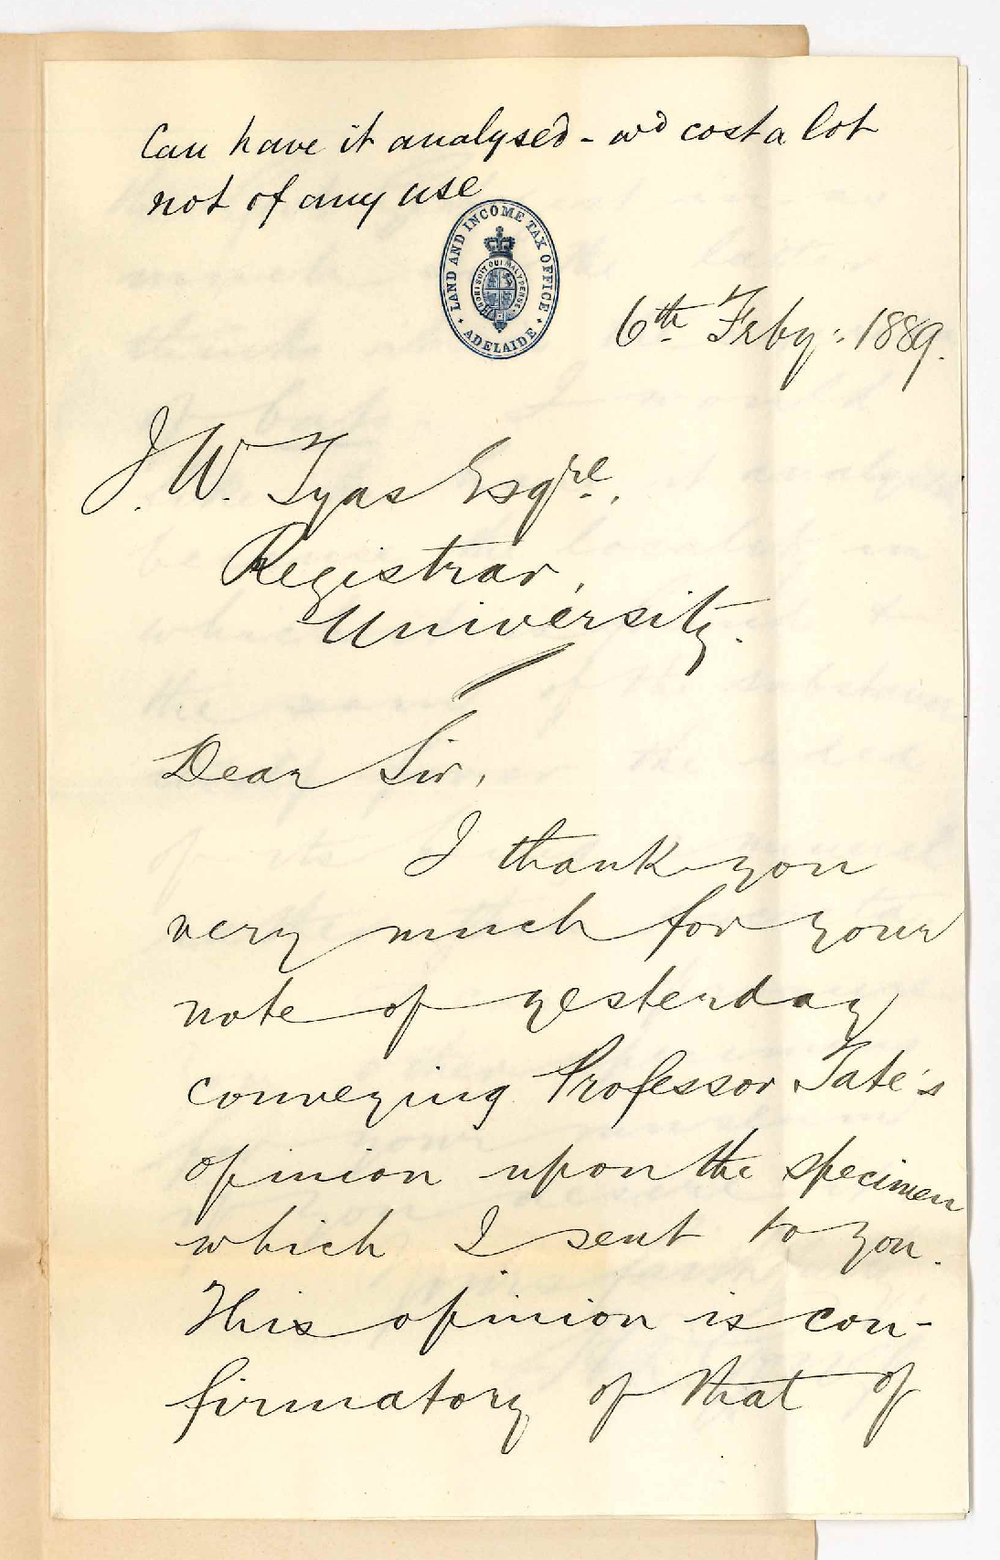 Can have it analysed - wd cost a lot
not of any use
LAND AND INCOME TAX OFFICE
ADELAIDE
HONI SOIT QUI MAL Y PENSE
6th Feby: 1889.
J. W. Tyas Esqre.,
Registrar,
University.
Dear Sir,
I thank you
very much for your
note of yesterday
conveying Professor Tate's
opinion upon the specimen
which I sent to you.
This opinion is con-
firmatory of that of